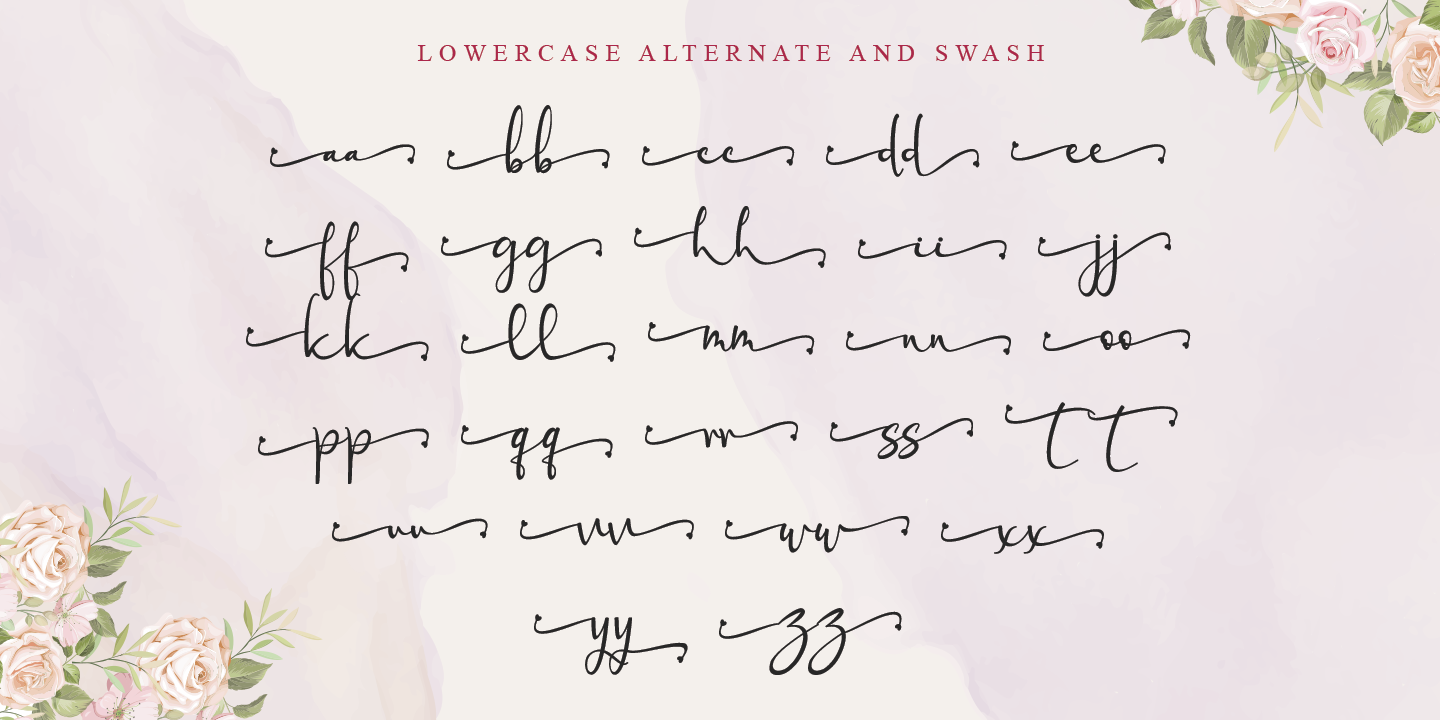 LOWERCASE ALTERNATE AND SWASH
aa bb cc dd ee
ff gg hh ii jj
kk ll mm nn oo
pp qq rr ss tt
uu vv ww xx
yy zz